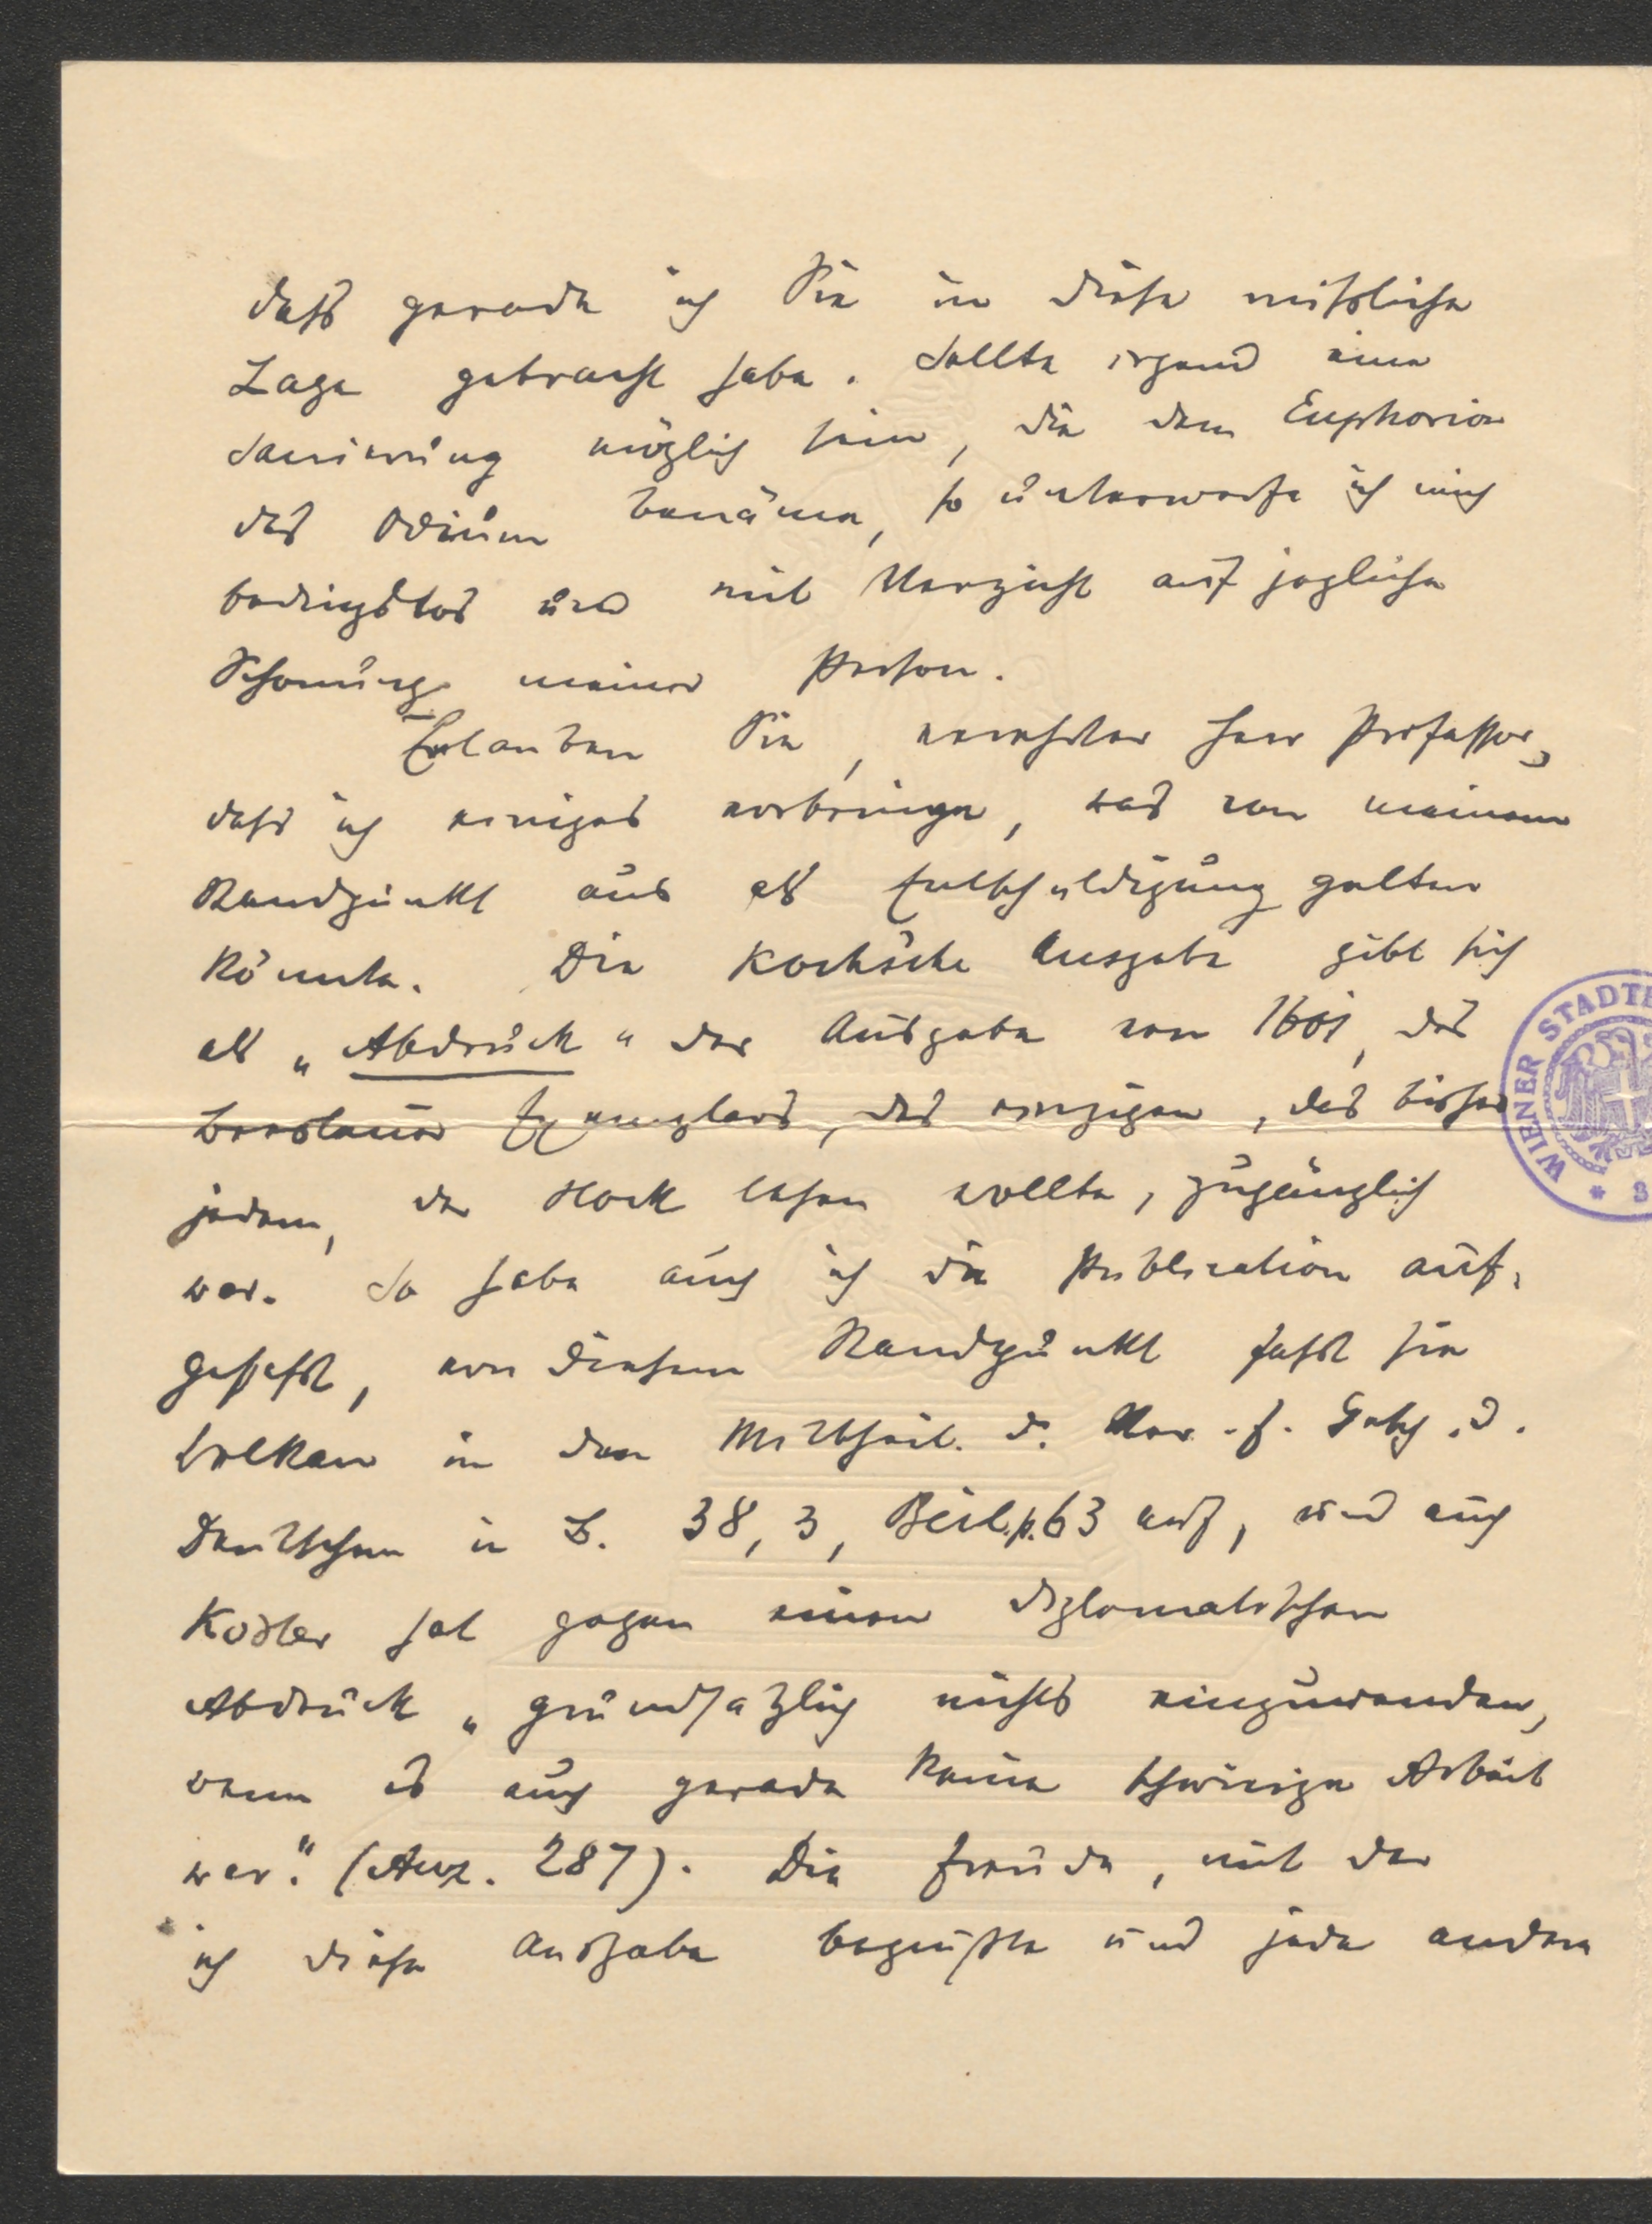 dass gerade ich Sie in diese missliche
Lage gebracht habe. Sollte irgend eine
Sanierung möglich sein, die dem Euphorion
das Odium benäme, so unterwerfe ich mich
bedingslos und mit Verzicht auf jegliche
Schonung meiner Person.
Erlauben Sie, verehrter Herr Professor,
dass ich einiges vorbringe, was von meinem
Standpunkt aus als Entschuldigung gelten
könnte. Die Koch'sche Ausgabe gibt sich
als „Abdruck“ der Ausgabe von 1601, des
Breslauer Exemplars, des einzigen, das bisher
jedem, der Hock lesen wollte, zugänglich
war. So habe auch ich die Publication auf-
gefasst, von diesem Standpunkt fasst sie
Wolkan in den Mittheil. d. Ver. f. Gesch. d.
Deutschen in B. 38, 3, Beil. p. 63 auf, und auch
Kosler hat gegen einen diplomatischen
Abdruck „grundsatzlich nichts einzuwenden,
wenn es auch gerade keine schwierige Arbeit
war.“ (Anz. 287). Die Freude, mit der
ich diese Ausgabe begrüsste und jede andere
WIENER STADT